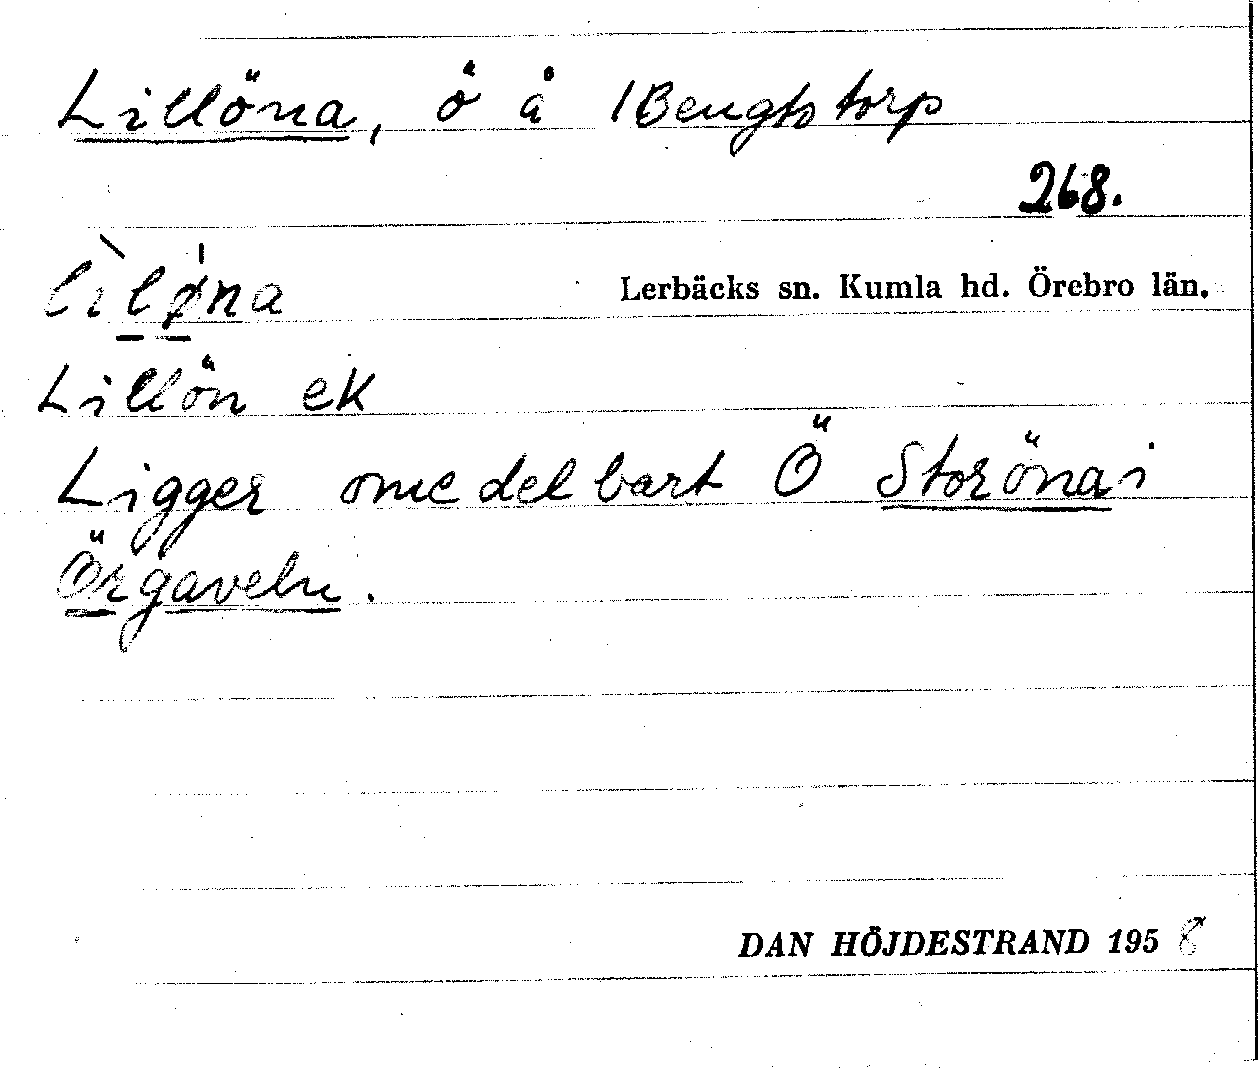 Lillöna, ö å 1 Bengtstorp
268.
lìløna
Lerbäcks sn. Kumla hd. Örebro län.
Lillön ek
Ligger omedelbart Ö Storöna i
Örgaveln.
DAN HÖJDESTRAND 1958